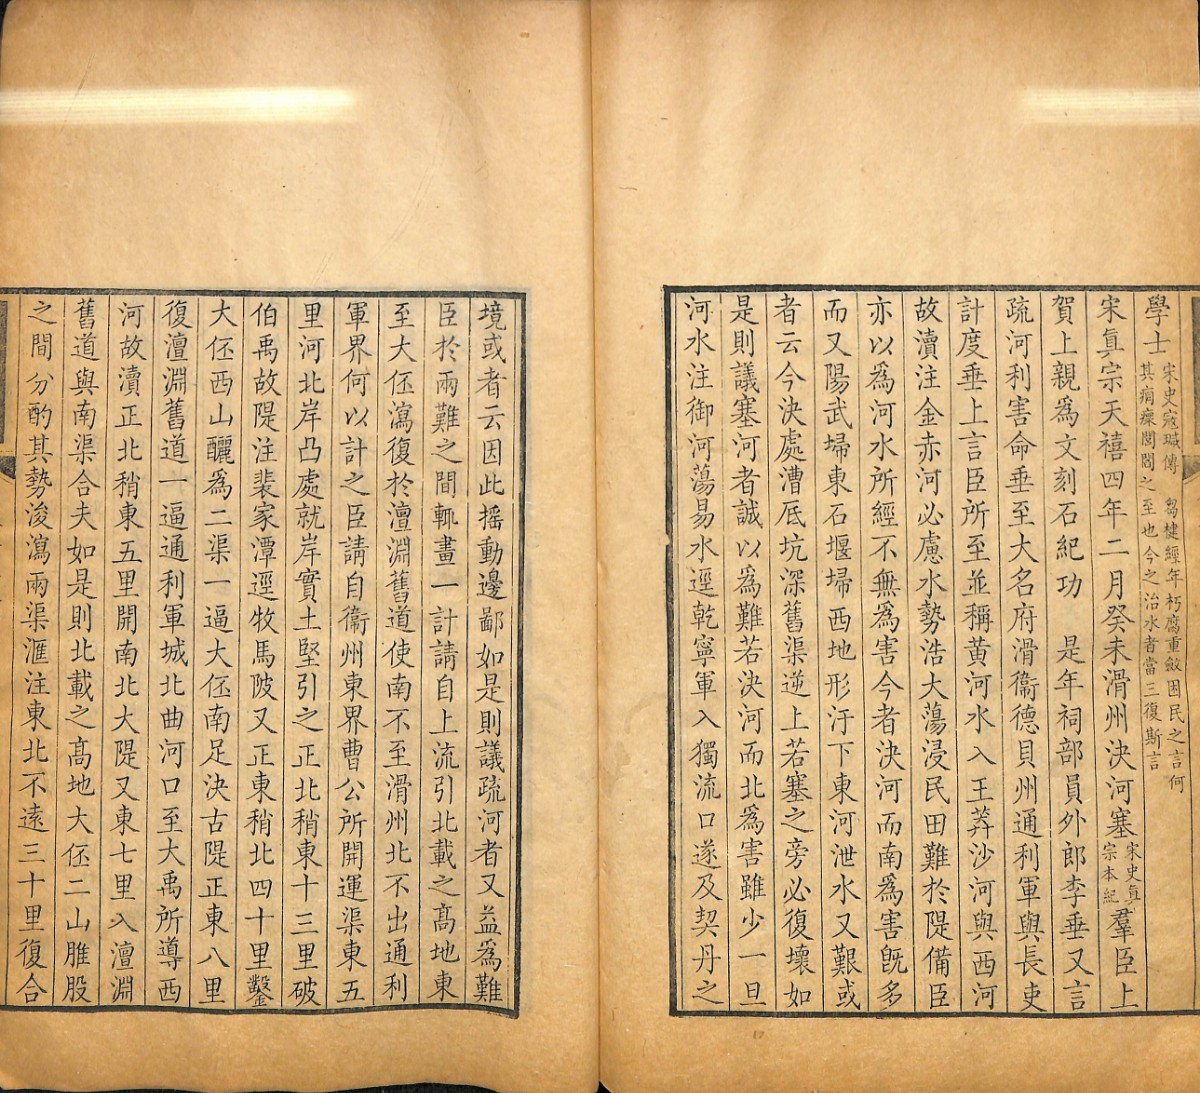 學士宋史寇瑊傳　芻揵經年朽腐重斂困民之言何其痌瘝閭閻之至也今之治水者當三復斯言
宋真宗天禧四年二月癸未滑州決河塞宋史真宗本紀羣臣上
賀上親爲文刻石紀功　是年祠部員外郎李垂又言
疏河利害命垂至大名府滑衞德貝州通利軍與長吏
計度垂上言臣所至並稱黃河水入王莽沙河與西河
故瀆注金赤河必慮水勢浩大蕩浸民田難於隄備臣
亦以爲河水所經不無爲害今者決河而南爲害既多
而又陽武埽東石堰埽西地形汙下東河泄水又艱或
者云今決處漕底坑深舊渠逆上若塞之旁必復壞如
是則議塞河者誠以爲難若決河而北爲害雖少一旦
河水注御河蕩易水逕乾寧軍入獨流口遂及契丹之
境或者云因此搖動邊鄙如是則議疏河者又益爲難
臣於兩難之間輒畫一計請自上流引北載之高地東
至大伾瀉復於澶淵舊道使南不至滑州北不出通利
軍界何以計之臣請自衞州東界曹公所開運渠東五
里河北岸凸處就岸實土堅引之正北稍東十三里破
伯禹故隄注裴家潭逕牧馬陂又正東稍北四十里鑿
大伾西山釃爲二渠一逼大伾南足決古隄正東八里
復澶淵舊道一逼通利軍城北曲河口至大禹所導西
河故瀆正北稍東五里開南北大隄又東七里入澶淵
舊道與南渠合夫如是則北載之高地大伾二山脽股
之間分酌其勢浚瀉兩渠滙注東北不遠三十里復合